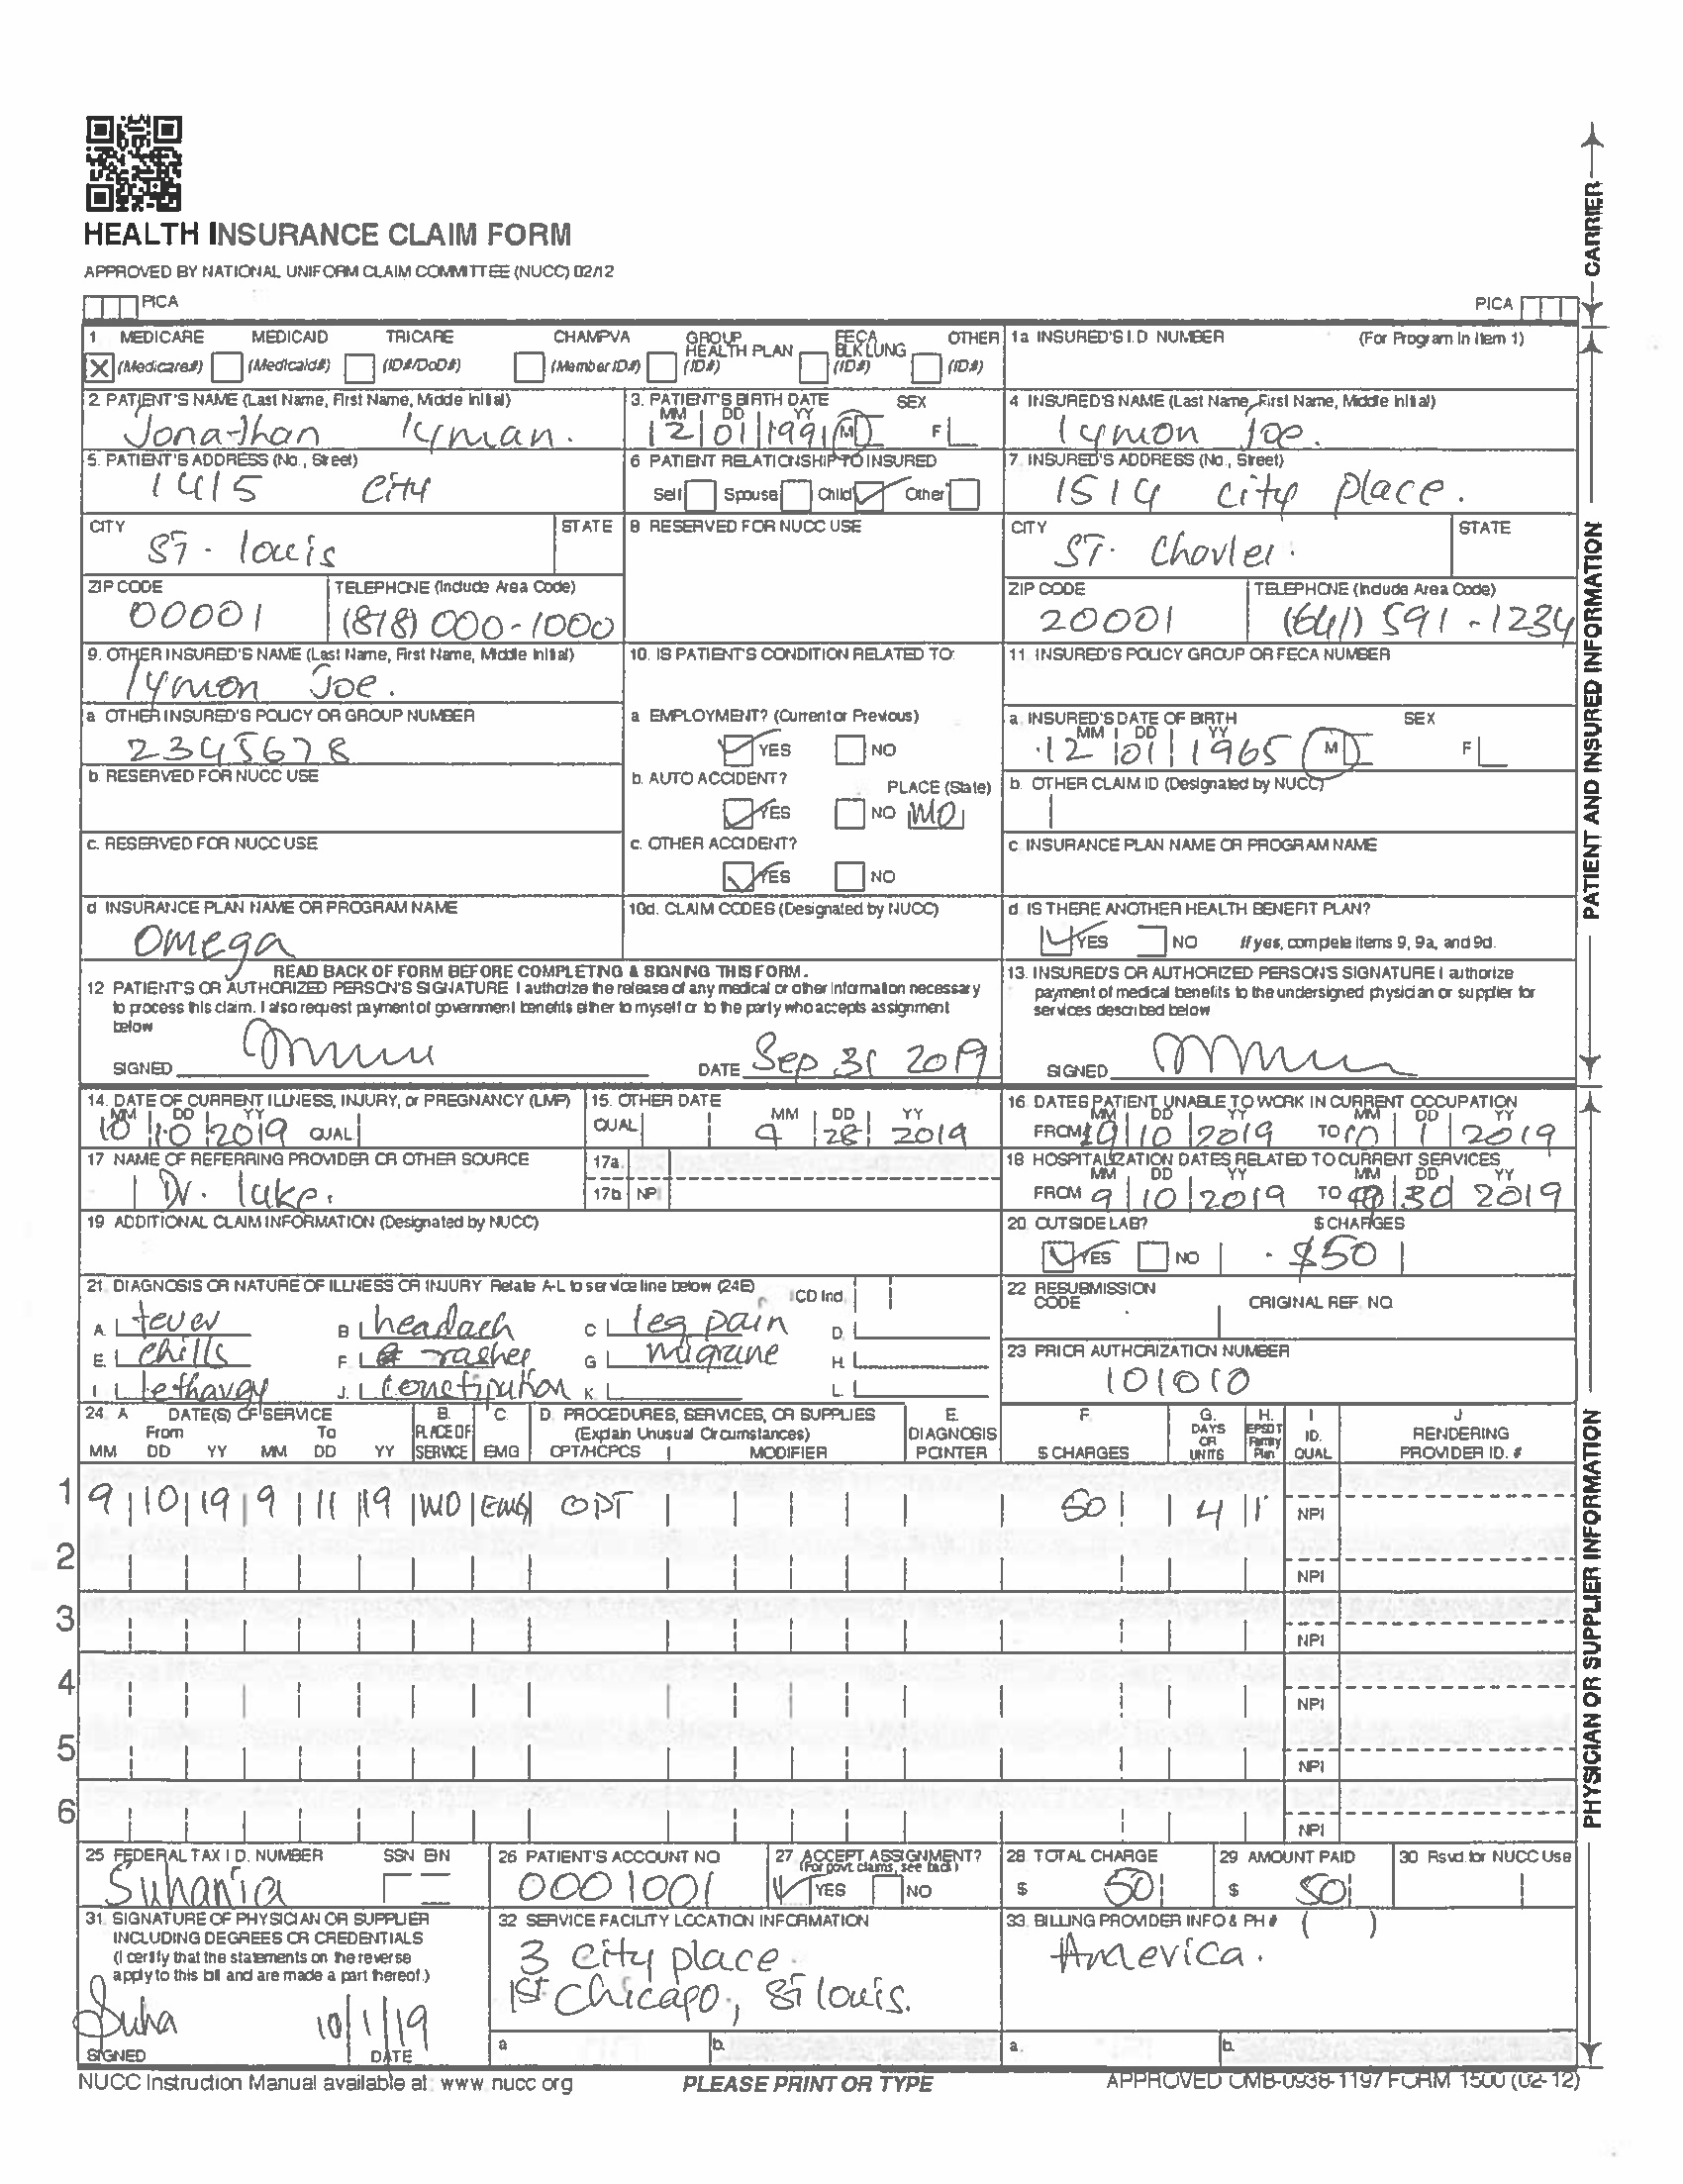 HEALTH INSURANCE CLAIM FORM
APPROVED BY NATIONAL UNIFORM CLAIM COMMITTEE (NUCC) 02/12
PICA
PICA
CARRIER
1. MEDICARE MEDICAID TRICARE CHAMPVA GROUP HEALTH PLAN FECA BLK LUNG OTHER
X (Medicare#) (Medicaid#) (ID#/DoD#) (Member ID#) (ID#) (ID#) (ID#)
1a INSURED'S I.D NUMBER (For Program In Item 1)
2. PATIENT'S NAME (Last Name, First Name, Middle Initial)
Jonathan lyman.
3. PATIENT'S BIRTH DATE SEX
MM DD YY
12 01 1991 M F
4 INSURED'S NAME (Last Name, First Name, Middle Initial)
lymon Joe.
5. PATIENT'S ADDRESS (No., Street)
1415 city
6 PATIENT RELATIONSHIP TO INSURED
Self Spouse Child Other
7. INSURED'S ADDRESS (No., Street)
1514 city place.
CITY STATE
ST. louis
8 RESERVED FOR NUCC USE
CITY STATE
ST. Charles.
ZIP CODE TELEPHONE (Include Area Code)
00001 (818) 000-1000
ZIP CODE TELEPHONE (Include Area Code)
20001 (641) 591-1234
9. OTHER INSURED'S NAME (Last Name, First Name, Middle Initial)
lymon Joe.
10. IS PATIENT'S CONDITION RELATED TO:
11. INSURED'S POLICY GROUP OR FECA NUMBER
a OTHER INSURED'S POLICY OR GROUP NUMBER
2345678
a EMPLOYMENT? (Current or Previous)
YES NO
a. INSURED'S DATE OF BIRTH SEX
MM DD YY
12 01 1965 M F
b. RESERVED FOR NUCC USE
b. AUTO ACCIDENT? PLACE (State)
YES NO MO
b. OTHER CLAIM ID (Designated by NUCC)
c. RESERVED FOR NUCC USE
c. OTHER ACCIDENT?
YES NO
c INSURANCE PLAN NAME OR PROGRAM NAME
d INSURANCE PLAN NAME OR PROGRAM NAME
Omega
10d. CLAIM CODES (Designated by NUCC)
d. IS THERE ANOTHER HEALTH BENEFIT PLAN?
YES NO If yes, complete items 9, 9a, and 9d.
READ BACK OF FORM BEFORE COMPLETING & SIGNING THIS FORM.
12 PATIENT'S OR AUTHORIZED PERSON'S SIGNATURE I authorize the release of any medical or other information necessary
to process this claim. I also request payment of government benefits either to myself or to the party who accepts assignment
below
SIGNED DATE Sep 31 2019
13. INSURED'S OR AUTHORIZED PERSON'S SIGNATURE I authorize
payment of medical benefits to the undersigned physician or supplier for
services described below
SIGNED
PATIENT AND INSURED INFORMATION
14. DATE OF CURRENT ILLNESS, INJURY, or PREGNANCY (LMP)
MM DD YY
10 10 2019 QUAL
15. OTHER DATE
QUAL MM DD YY
9 28 2019
16. DATES PATIENT UNABLE TO WORK IN CURRENT OCCUPATION
MM DD YY MM DD YY
FROM 10 2019 TO 10 1 2019
17 NAME OF REFERRING PROVIDER OR OTHER SOURCE
Dr. luke.
17a.
17b NPI
18 HOSPITALIZATION DATES RELATED TO CURRENT SERVICES
MM DD YY MM DD YY
FROM 9 10 2019 TO 30 2019
19 ADDITIONAL CLAIM INFORMATION (Designated by NUCC)
20. OUTSIDE LAB? $ CHARGES
YES NO $50
21. DIAGNOSIS OR NATURE OF ILLNESS OR INJURY Relate A-L to service line below (24E) ICD Ind.
A. fever B headach C leg pain D.
E. chills F. rashes G migrane H.
I. lethargy J. constipution K. L.
22 RESUBMISSION CODE ORIGINAL REF. NO.
23 PRIOR AUTHORIZATION NUMBER
101010
24. A DATE(S) OF SERVICE B. C. D. PROCEDURES, SERVICES, OR SUPPLIES E. F. G. H. I J
From To PLACE OF (Explain Unusual Circumstances) DIAGNOSIS DAYS OR EPSDT Family ID. RENDERING
MM DD YY MM DD YY SERVICE EMG CPT/HCPCS MODIFIER POINTER $ CHARGES UNITS Plan QUAL PROVIDER ID. #
1 9 10 19 9 11 19 MO EMG OPT 50 4 1 NPI
2 NPI
3 NPI
4 NPI
5 NPI
6 NPI
25 FEDERAL TAX I D. NUMBER SSN EIN
Suhania
26 PATIENT'S ACCOUNT NO
0001001
27 ACCEPT ASSIGNMENT?
(For govt. claims, see back)
YES NO
28. TOTAL CHARGE
$ 50
29 AMOUNT PAID
$ 50
30 Rsvd. for NUCC Use
31. SIGNATURE OF PHYSICIAN OR SUPPLIER
INCLUDING DEGREES OR CREDENTIALS
(I certify that the statements on the reverse
apply to this bill and are made a part thereof.)
Suha 10/1/19
SIGNED DATE
32 SERVICE FACILITY LOCATION INFORMATION
3 city place
1st Chicago, St louis.
a b.
33. BILLING PROVIDER INFO & PH # ( )
America.
a. b.
PHYSICIAN OR SUPPLIER INFORMATION
NUCC Instruction Manual available at: www.nucc.org
PLEASE PRINT OR TYPE
APPROVED OMB-0938-1197 FORM 1500 (02-12)